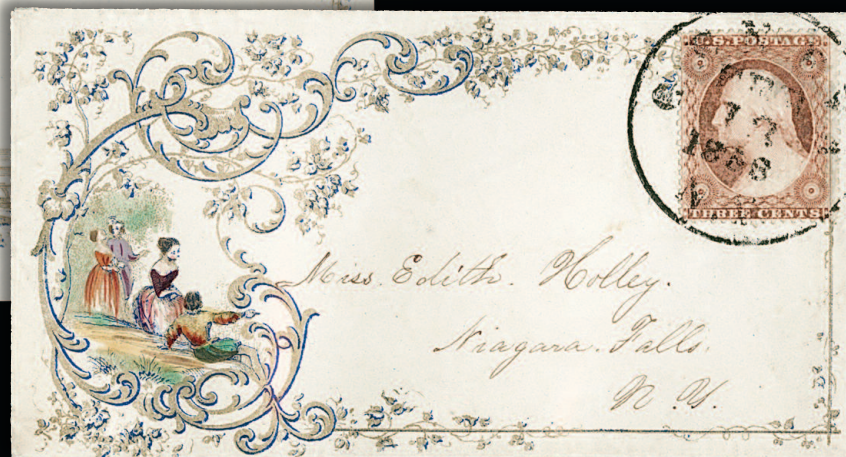 U.S. POSTAGE
17
1858
THREE CENTS
Miss. Edith. Holley.
Niagara. Falls.
N. Y.